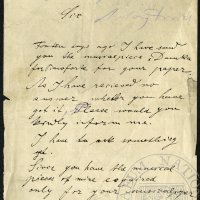 Sir
Fourteen days ago I have send
you the masterpiece: Dumka
for your paper
As I have recieved no
answer whether you have
got it, Please would you
kindly inform me.
I have to ask something
Since you have the musical
pieces of mine
only for your